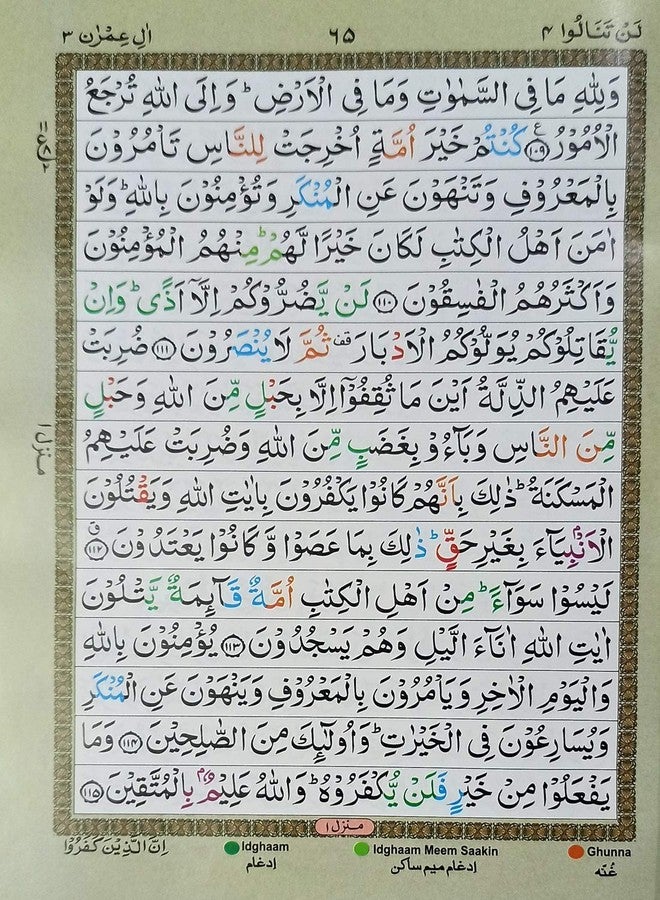 لَنْ تَنَالُوا ٤
٦٥
اٰلِ عِمْرٰن ٣
وَلِلّٰهِ مَا فِی السَّمٰوٰتِ وَمَا فِی الْاَرْضِ ؕ وَاِلَی اللّٰهِ تُرْجَعُ
الْاُمُوْرُ ۝١٠٩ ع كُنْتُمْ خَیْرَ اُمَّةٍ اُخْرِجَتْ لِلنَّاسِ تَاْمُرُوْنَ
بِالْمَعْرُوْفِ وَتَنْهَوْنَ عَنِ الْمُنْكَرِ وَتُؤْمِنُوْنَ بِاللّٰهِ ؕ وَلَوْ
اٰمَنَ اَهْلُ الْكِتٰبِ لَكَانَ خَیْرًا لَّهُمْ ؕ مِنْهُمُ الْمُؤْمِنُوْنَ
وَاَكْثَرُهُمُ الْفٰسِقُوْنَ ۝١١٠ لَنْ یَّضُرُّوْكُمْ اِلَّاۤ اَذًی ؕ وَاِنْ
یُّقَاتِلُوْكُمْ یُوَلُّوْكُمُ الْاَدْبَارَ ۫ ثُمَّ لَا یُنْصَرُوْنَ ۝١١١ ضُرِبَتْ
عَلَیْهِمُ الذِّلَّةُ اَیْنَ مَا ثُقِفُوْۤا اِلَّا بِحَبْلٍ مِّنَ اللّٰهِ وَحَبْلٍ
مِّنَ النَّاسِ وَبَآءُوْ بِغَضَبٍ مِّنَ اللّٰهِ وَضُرِبَتْ عَلَیْهِمُ
الْمَسْكَنَةُ ؕ ذٰلِكَ بِاَنَّهُمْ كَانُوْا یَكْفُرُوْنَ بِاٰیٰتِ اللّٰهِ وَیَقْتُلُوْنَ
الْاَنْۢبِیَآءَ بِغَیْرِ حَقٍّ ؕ ذٰلِكَ بِمَا عَصَوْا وَّكَانُوْا یَعْتَدُوْنَ ۝١١٢
لَیْسُوْا سَوَآءً ؕ مِنْ اَهْلِ الْكِتٰبِ اُمَّةٌ قَآىِٕمَةٌ یَّتْلُوْنَ
اٰیٰتِ اللّٰهِ اٰنَآءَ الَّیْلِ وَهُمْ یَسْجُدُوْنَ ۝١١٣ یُؤْمِنُوْنَ بِاللّٰهِ
وَالْیَوْمِ الْاٰخِرِ وَیَاْمُرُوْنَ بِالْمَعْرُوْفِ وَیَنْهَوْنَ عَنِ الْمُنْكَرِ
وَیُسَارِعُوْنَ فِی الْخَیْرٰتِ ؕ وَاُولٰٓىِٕكَ مِنَ الصّٰلِحِیْنَ ۝١١٤ وَمَا
یَفْعَلُوْا مِنْ خَیْرٍ فَلَنْ یُّكْفَرُوْهُ ؕ وَاللّٰهُ عَلِیْمٌۢ بِالْمُتَّقِیْنَ ۝١١٥
منزل ١
منزل ١
اِنَّ الَّذِیْنَ كَفَرُوْا
Idghaam
ادغام
Idghaam Meem Saakin
ادغام میم ساکن
Ghunna
غُنّه